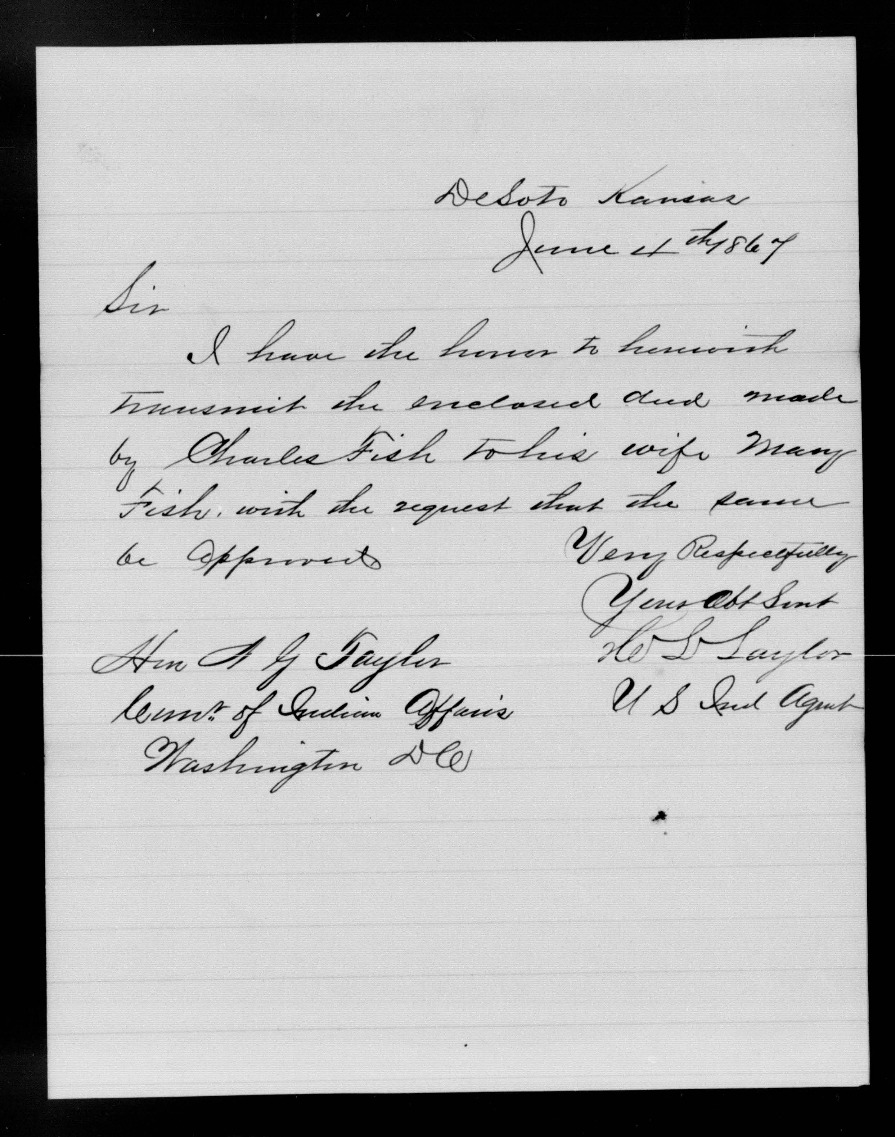 DeSoto Kansas
June 4th 1867
Sir
I have the honor to herewith
transmit the enclosed deed made
by Charles Fish to his wife Mary
Fish. with the request that the same
be Approved
Very Respectfully
Your Obt Svnt
H L Taylor
U S Ind Agent
Hon N G Taylor
Comr. of Indian Affairs
Washington D C